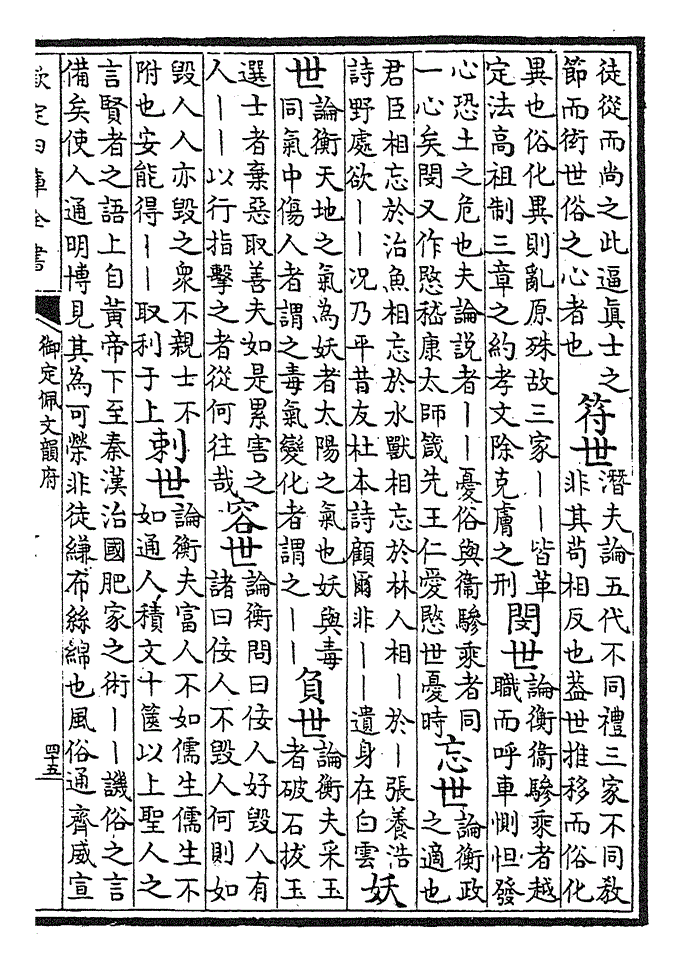 徒從而尚之此逼眞士之
節而衒世俗之心者也
符世
潛夫論五代不同禮三家不同教
非其苟相反也葢世推移而俗化
異也俗化異則亂原殊故三家——皆革
定法高祖制三章之約孝文除克膚之刑
閔世
論衡衞驂乘者越
職而呼車惻怛發
心恐土之危也夫論説者——憂俗與衞驂乘者同
一心矣閔又作愍嵇康太師箴先王仁愛愍世憂時
忘世
論衡政
之適也
君臣相忘於治魚相忘於水獸相忘於林人相—於—張養浩
詩野處欲——况乃平昔友杜本詩顧爾非——遺身在白雲
妖
世
論衡天地之氣為妖者太陽之氣也妖與毒
同氣中傷人者謂之毒氣變化者謂之——
負世
論衡夫采玉
者破石拔玉
選士者棄惡取善夫如是累害之
人——以行指擊之者從何往哉
容世
論衡問曰佞人好毀人有
諸曰佞人不毀人何則如
毀人人亦毀之衆不親士不
附也安能得——取利于上
刺世
論衡夫富人不如儒生儒生不
如通人積文十篋以上聖人之
言賢者之語上自黃帝下至秦漢治國肥家之術——譏俗之言
備矣使人通明博見其為可榮非徒縑布絲綿也風俗通齊威宣
欽定四庫全書
御定佩文韻府
四十五